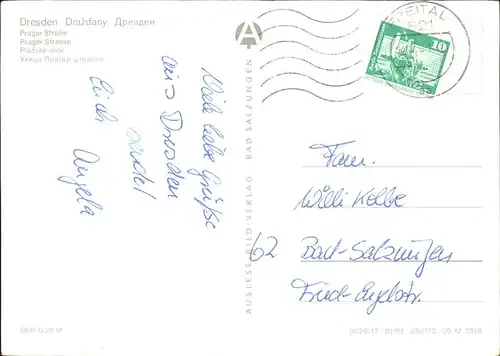 Dresden Drážďany Дрезден
Prager Straße
Prager Strasse
Pražská ulice
Улица Прагер штрассе
Viele liebe Grüße
aus Dresden
sendet
Euch
Angela
AUSLESE-BILD-VERLAG BAD SALZUNGEN
FREITAL
10
Fam.
Willi Kolbe
62 Bad-Salzungen
Fried.-Engelstr.
DDR 0,20 M